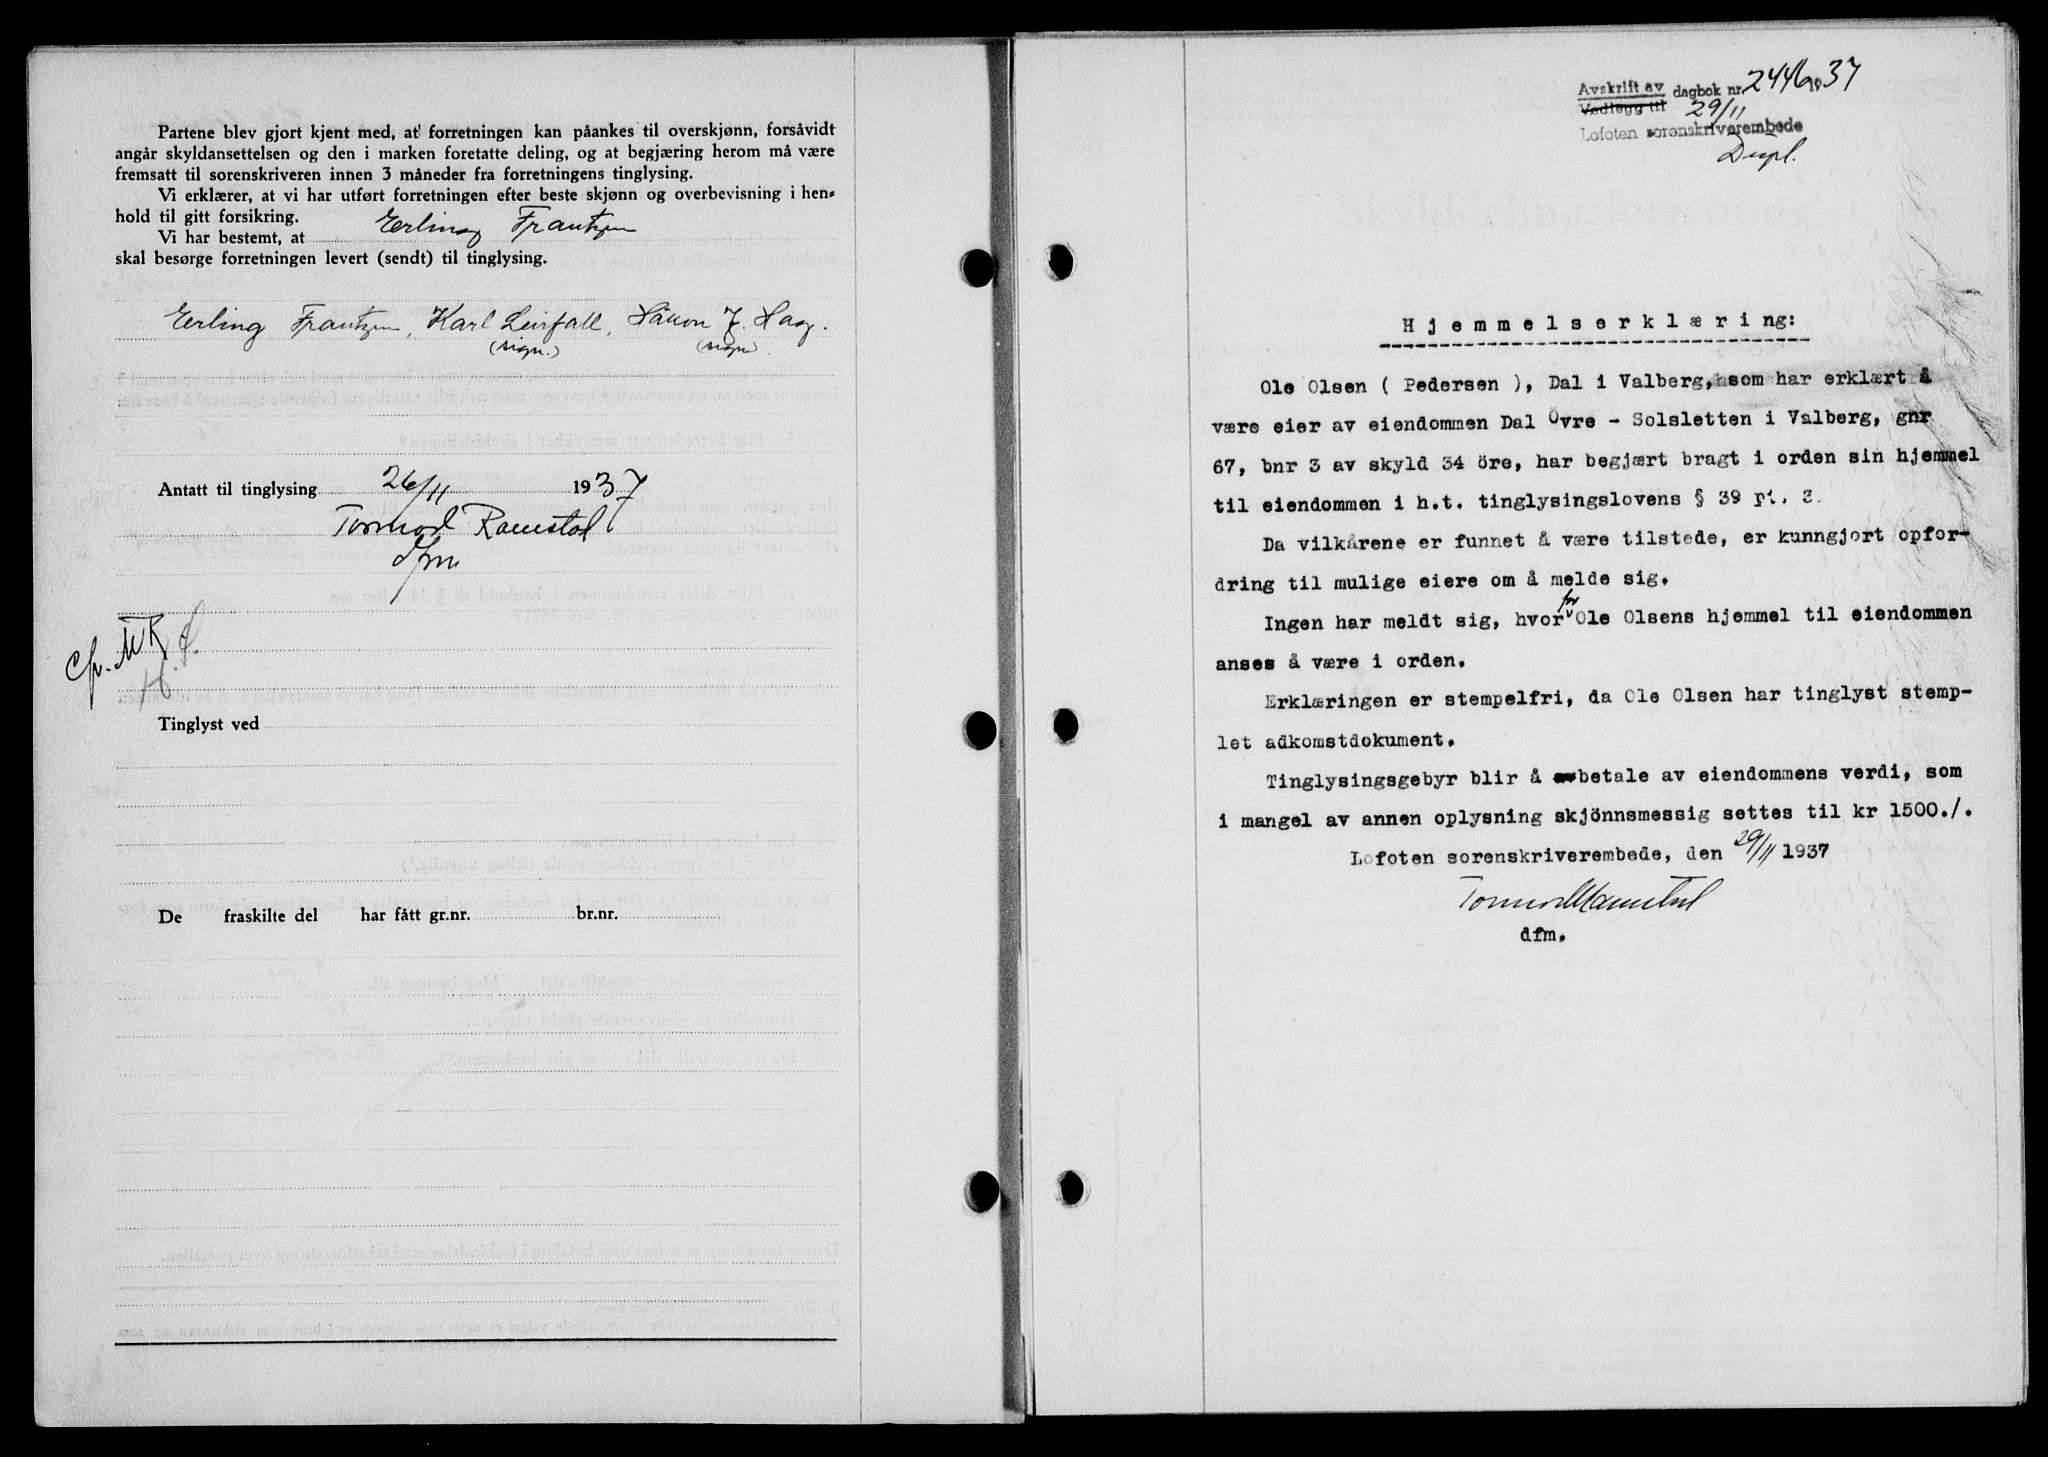 Partene blev gjort kjent med, at forretningen kan påankes til overskjønn, forsåvidt
angår skyldansettelsen og den i marken foretatte deling, og at begjæring herom må være
fremsatt til sorenskriveren innen 3 måneder fra forretningens tinglysing.
Vi erklærer, at vi har utført forretningen efter beste skjønn og overbevisning i hen-
hold til gitt forsikring.
Vi har bestemt, at Erling Frantzen
skal besørge forretningen levert (sendt) til tinglysing.
Erling Frantzen, Karl Leirfall, Håkon J. Hag.
(sign.) (sign)
Antatt til tinglysing 26/11 1937
Tormod Ramstad
dfm
Tinglyst ved
De fraskilte del har fått gr.nr. br.nr.
Avskrift av dagbok nr 2446 1937
Vedlegg til 29/11
Lofoten sorenskriverembede
Dupl.
Hjemmelserklæring:
Ole Olsen ( Pedersen ), Dal i Valberg, som har erklært å
være eier av eiendommen Dal Övre - Solsletten i Valberg, gnr
67, bnr 3 av skyld 34 öre, har begjært bragt i orden sin hjemmel
til eiendommen i h.t. tinglysingslovens § 39 pt. 3.
Da vilkårene er funnet å være tilstede, er kunngjort opfor-
dring til mulige eiere om å melde sig.
Ingen har meldt sig, hvorfor Ole Olsens hjemmel til eiendommen
anses å være i orden.
Erklæringen er stempelfri, da Ole Olsen har tinglyst stemp-
let adkomstdokument.
Tinglysingsgebyr blir å betale av eiendommens verdi, som
i mangel av annen oplysning skjönnsmessig settes til kr 1500./.
Lofoten sorenskriverembede, den 29/11 1937
Tormod Ramstad
dfm.